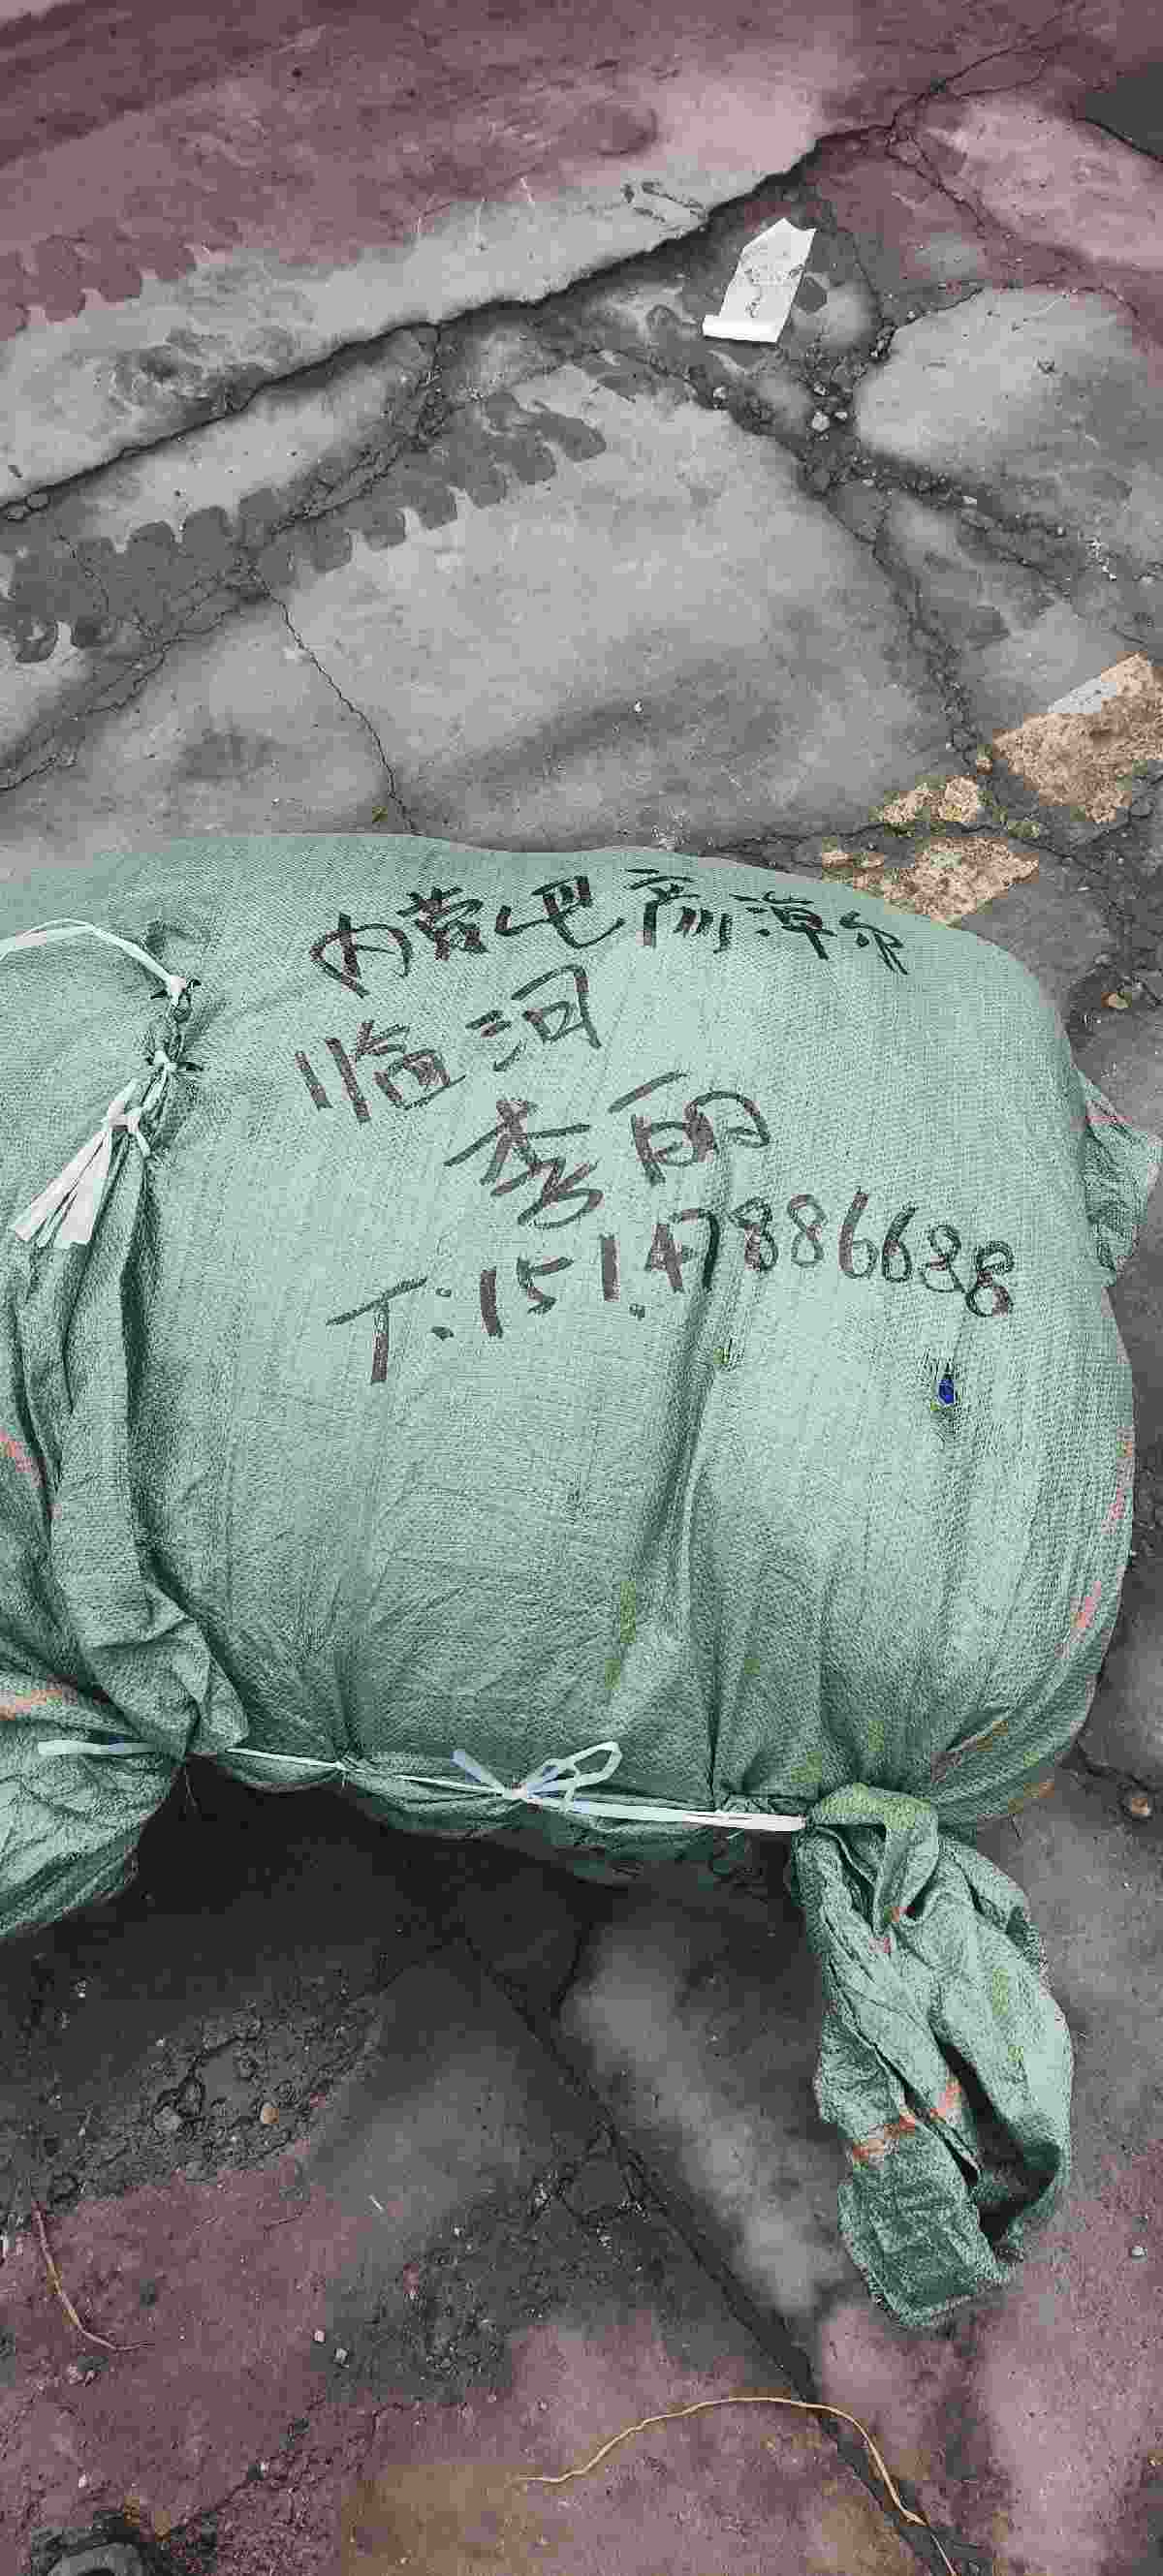 内蒙巴彦淖尔
临河
李丽
T:15147886638